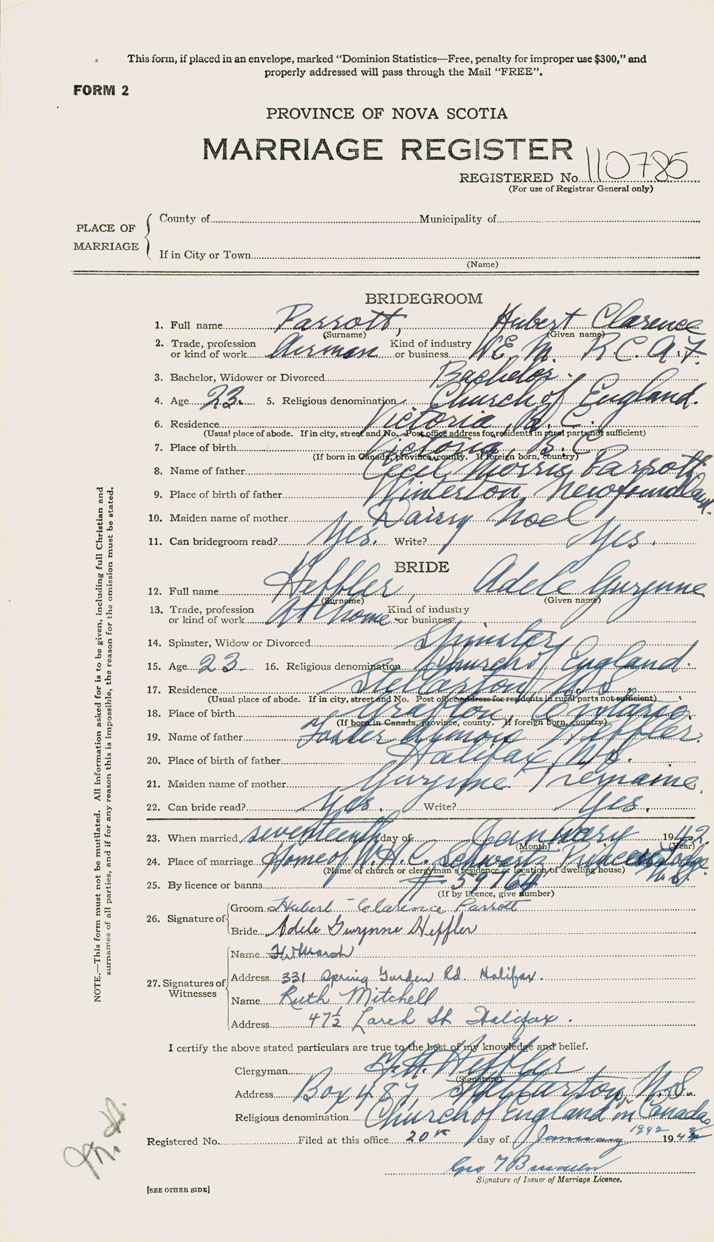 This form, if placed in an envelope, marked "Dominion Statistics—Free, penalty for improper use $300," and
properly addressed will pass through the Mail "FREE".
FORM 2
PROVINCE OF NOVA SCOTIA
MARRIAGE REGISTER
REGISTERED No. 110785
(For use of Registrar General only)
PLACE OF MARRIAGE
County of Municipality of
If in City or Town
(Name)
BRIDEGROOM
1. Full name Parrott, Hubert Clarence
(Surname) (Given name)
2. Trade, profession or kind of work Airman Kind of industry or business W.E.M. R.C.A.F.
3. Bachelor, Widower or Divorced Bachelor.
4. Age 23. 5. Religious denomination Church of England.
6. Residence Victoria B.C.
(Usual place of abode. If in city, street and No. Post office address for residents in rural parts not sufficient)
7. Place of birth Victoria B.C.
(If born in Canada, province, county. If foreign born, country)
8. Name of father Cecil Morris Parrott
9. Place of birth of father Winterton, Newfoundland.
10. Maiden name of mother Daisy Noel
11. Can bridegroom read? Yes. Write? Yes.
BRIDE
12. Full name Heffler, Adele Gwynne
(Surname) (Given name)
13. Trade, profession or kind of work At home Kind of industry or business
14. Spinster, Widow or Divorced Spinster
15. Age 23 16. Religious denomination Church of England.
17. Residence Stellarton, N.S.
(Usual place of abode. If in city, street and No. Post office address for residents in rural parts not sufficient)
18. Place of birth Ontario.
(If born in Canada, province, county. If foreign born, country)
19. Name of father Foster Heffler.
20. Place of birth of father Halifax N.S.
21. Maiden name of mother Gwynne Tremaine.
22. Can bride read? Yes. Write? Yes.
23. When married seventeenth day of January 1942
(Month) (Year)
24. Place of marriage Home of W.H.C. Schwartz
(Name of church or clergyman's residence or location of dwelling house)
25. By licence or banns # 59164
(If by licence, give number)
26. Signature of
Groom Hubert Clarence Parrott
Bride Adele Gwynne Heffler
27. Signatures of Witnesses
Name
Address 331 Spring Garden Rd. Halifax.
Name Ruth Mitchell
Address 47½ Larch St Halifax.
I certify the above stated particulars are true to the best of my knowledge and belief.
Clergyman Heffler
(Signature)
Address Box 487 Stellarton, N.S.
Religious denomination Church of England in Canada
Registered No. Filed at this office 20th day of January 1942
Signature of Issuer of Marriage Licence.
[SEE OTHER SIDE]
NOTE.—This form must not be mutilated. All information asked for is to be given, including full Christian and
surnames of all parties, and if for any reason this is impossible, the reason for the omission must be stated.